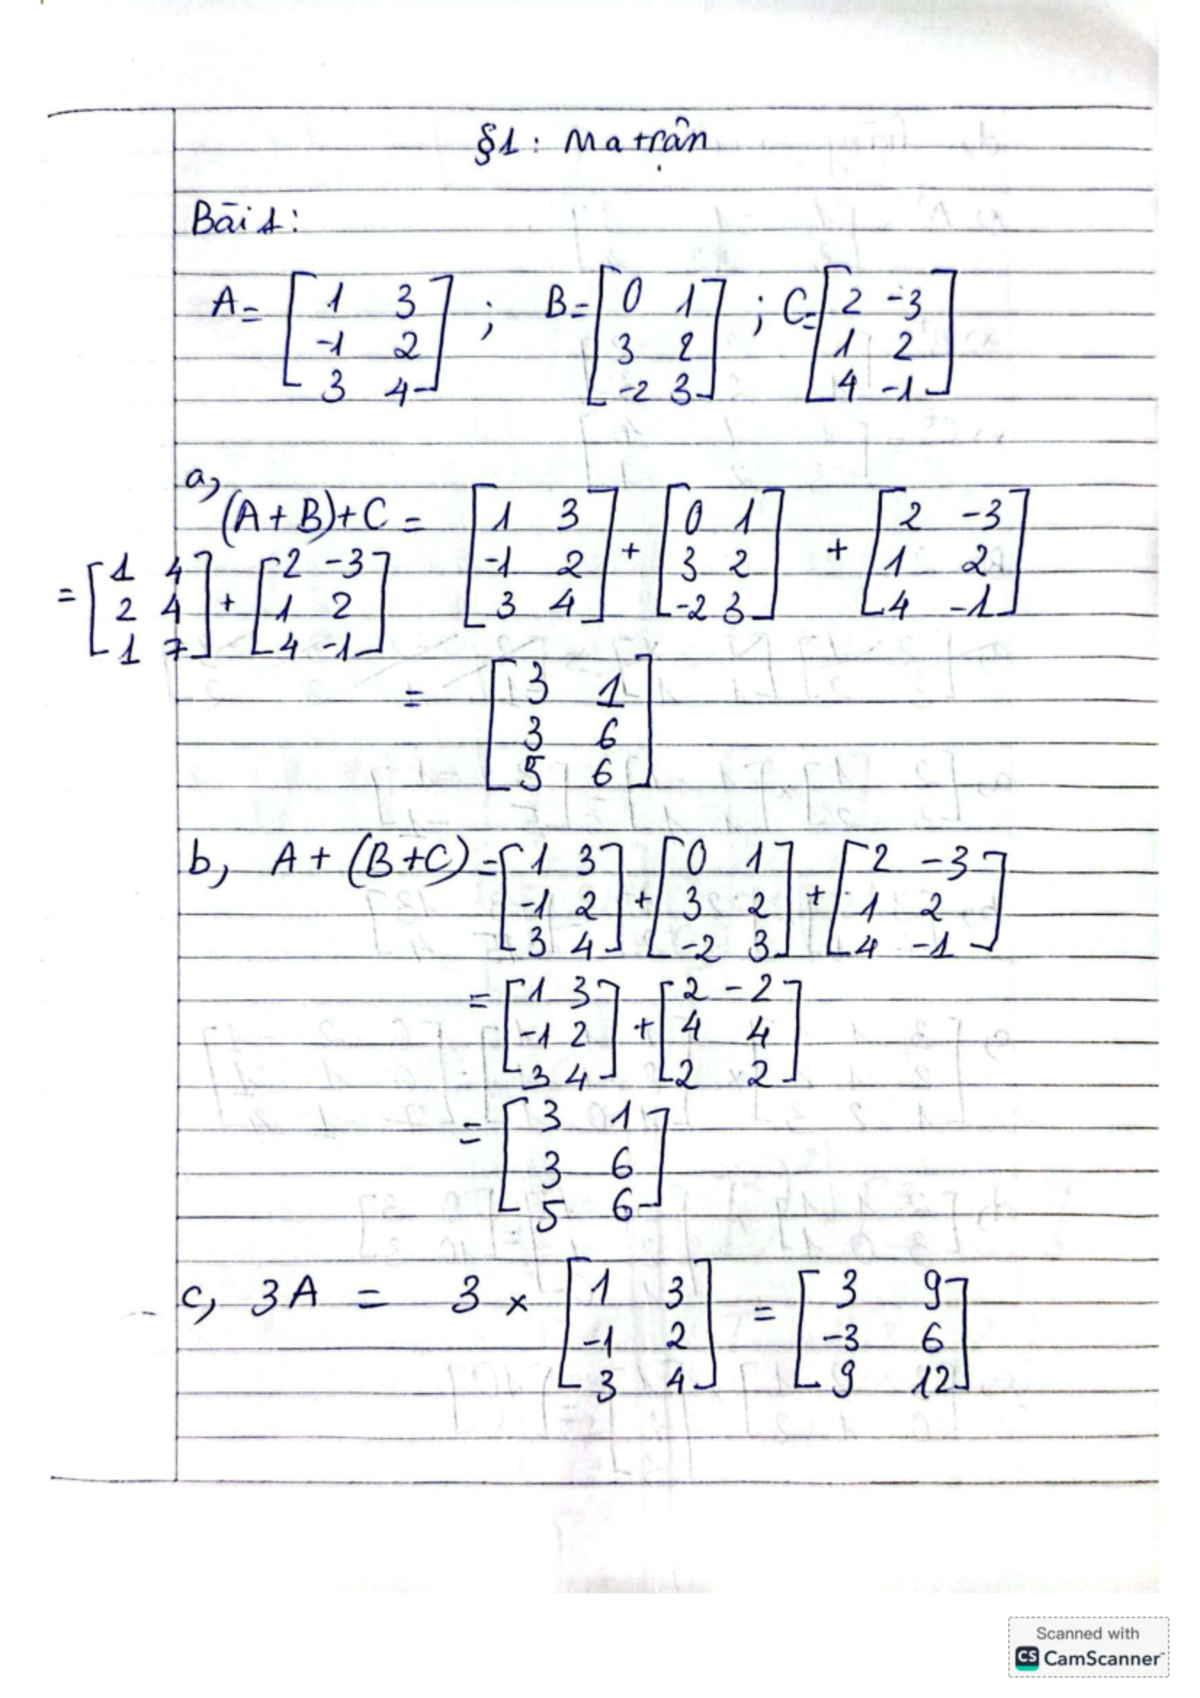 §1: Ma trận
Bài 1:
A = [1 3; -1 2; 3 4] ; B = [0 1; 3 2; -2 3] ; C = [2 -3; 1 2; 4 -1]
a, (A+B)+C = [1 3; -1 2; 3 4] + [0 1; 3 2; -2 3] + [2 -3; 1 2; 4 -1]
= [1 4; 2 4; 1 7] + [2 -3; 1 2; 4 -1]
= [3 1; 3 6; 5 6]
b, A + (B+C) = [1 3; -1 2; 3 4] + [0 1; 3 2; -2 3] + [2 -3; 1 2; 4 -1]
= [1 3; -1 2; 3 4] + [2 -2; 4 4; 2 2]
= [3 1; 3 6; 5 6]
c, 3A = 3 × [1 3; -1 2; 3 4] = [3 9; -3 6; 9 12]
Scanned with
CS CamScanner